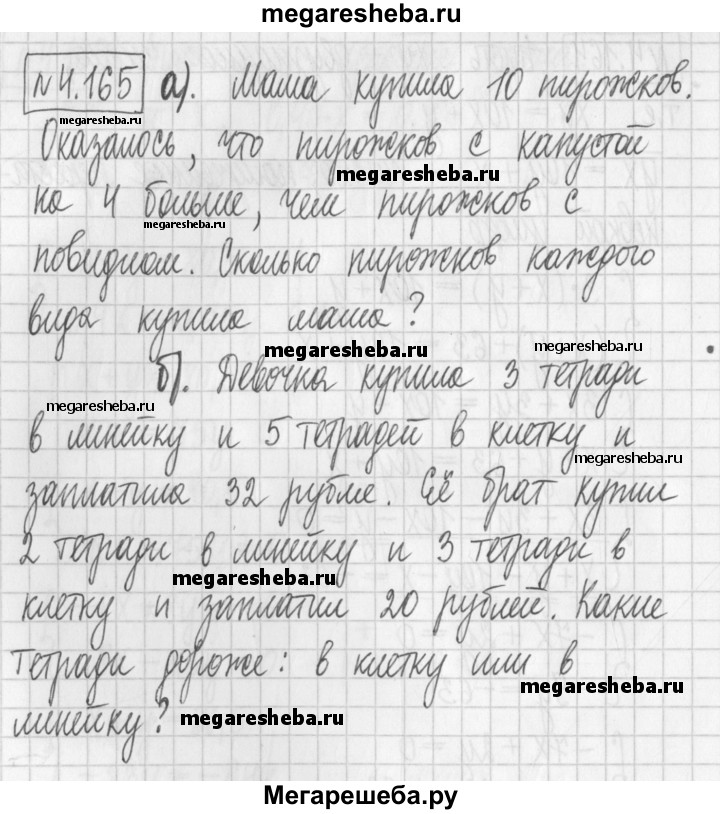 megaresheba.ru
№4.165 а). Маша купила 10 пирожков.
megaresheba.ru
Оказалось, что пирожков с капустой
megaresheba.ru
на 4 больше, чем пирожков с
megaresheba.ru
повидлом. Сколько пирожков каждого
вида купила маша?
megaresheba.ru megaresheba.ru
б). Девочка купила 3 тетради
megaresheba.ru
в линейку и 5 тетрадей в клетку и
megaresheba.ru
заплатила 32 рубле. Её брат купил
2 тетради в линейку и 3 тетради в
megaresheba.ru
клетку и заплатил 20 рублей. Какие
тетради дороже: в клетку или в
megaresheba.ru
линейку? megaresheba.ru
Мегарешеба.ру